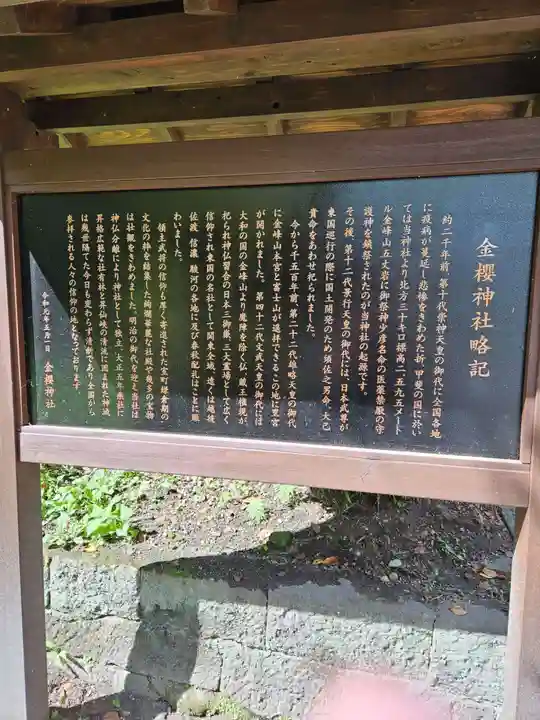 金櫻神社略記
約二千年前、第十代崇神天皇の御代に全国各地
に疫病が蔓延し悲惨をきわめた折、甲斐の国に於い
ては当神社より北方三十キロ標高二、五九五メート
ル金峰山五丈岩に御祭神少彦名命の医薬禁厭の守
護神を鎮祭されたのが当神社の起源です。
その後、第十二代景行天皇の御代には、日本武尊が
東国巡行の際に国土開発のため須佐之男命、大己
貴命をあわせ祀られました。
今から千五百年前、第二十二代雄略天皇の御代
に金峰山本宮と富士山が遥拝できるこの地に里宮
が開かれました。第四十二代文武天皇の御代には
大和の国の金峰山より魔障を除く仏、蔵王権現が
祀られ神仏習合の日本三御嶽、三大霊場として広く
信仰され東国の名社として関東全域、遠くは越後
佐渡、信濃、駿河の各地に及び春秋配札はことに賑
わいました。
領主武将の信仰も厚く寄進された室町鎌倉期の
文化の粋を結集した絢爛華麗な社殿や幾多の宝物
は壮観をきわめました。明治の御代を迎え当社は
神仏分離により神社として独立、大正五年県社に
昇格広範な社有林と昇仙峡の清流に囲まれた神域
は幾世隔てた今日も変わらず清創であり全国から
参拝される人々の信仰の地となっております
令和元年五月一日 金櫻神社